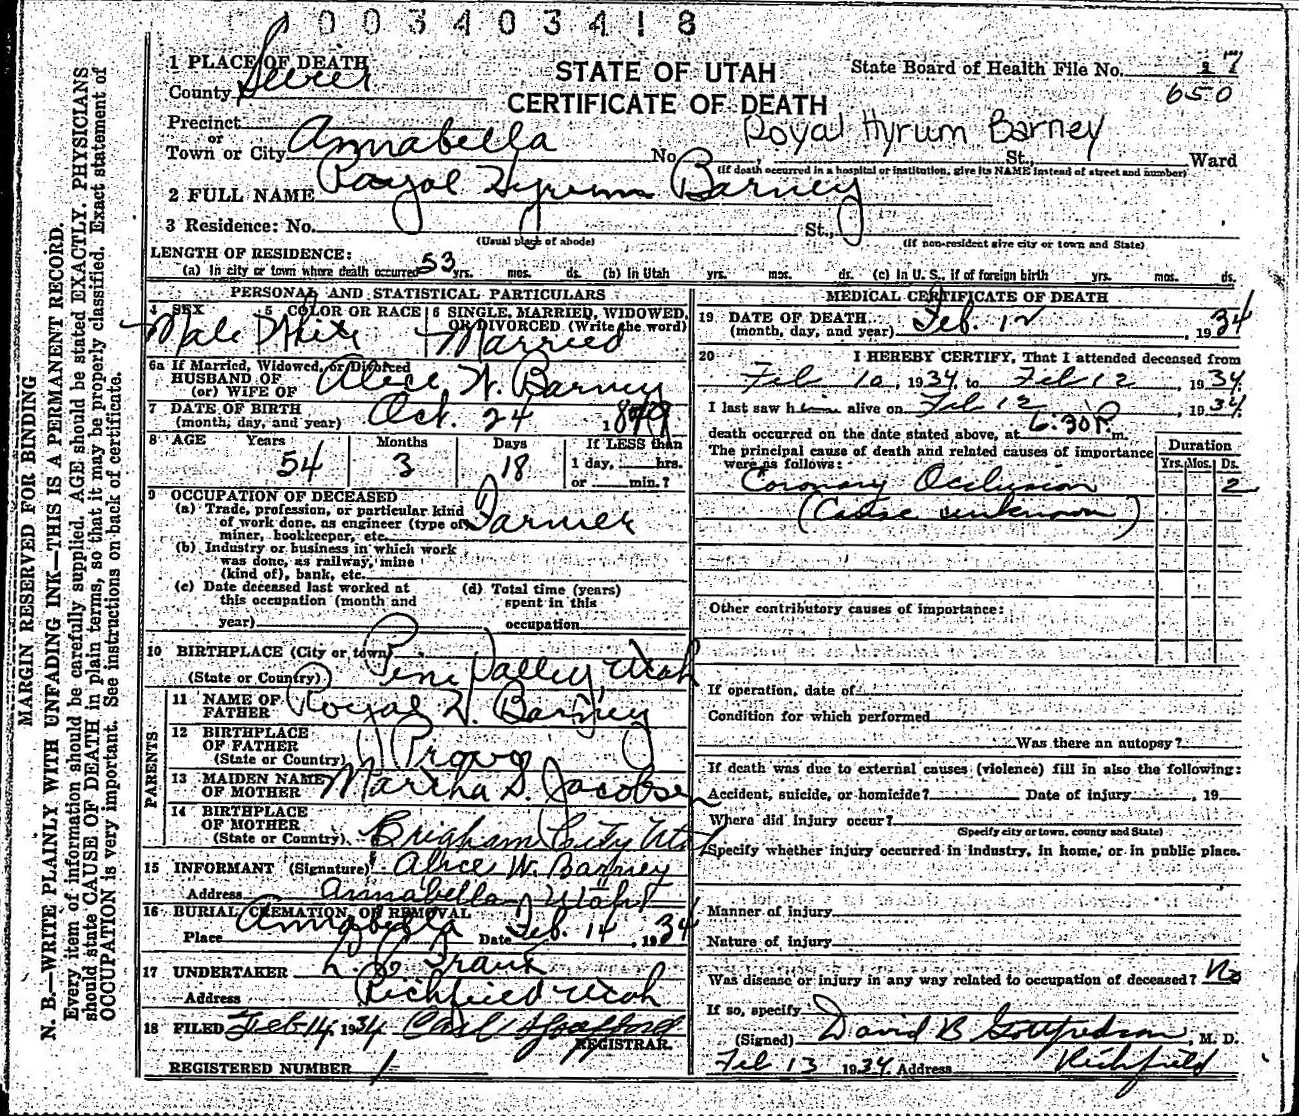 0 0 3 4 0 3 4 1 8
1 PLACE OF DEATH
County Sevier
STATE OF UTAH
CERTIFICATE OF DEATH
State Board of Health File No. 17
650
Precinct
or
Town or City Annabella No. St., Ward
Royal Hyrum Barney
(If death occurred in a hospital or institution, give its NAME instead of street and number)
2 FULL NAME Royal Hyrum Barney
3 Residence: No. St.,
(Usual place of abode) (If non-resident give city or town and State)
LENGTH OF RESIDENCE:
(a) In city or town where death occurred 53 yrs. mos. ds. (b) In Utah yrs. mos. ds. (c) In U. S., if of foreign birth yrs. mos. ds.
PERSONAL AND STATISTICAL PARTICULARS
4 SEX 5 COLOR OR RACE 6 SINGLE, MARRIED, WIDOWED,
OR DIVORCED (Write the word)
Male White Married
6a If Married, Widowed, or Divorced
HUSBAND OF
(or) WIFE OF Alice W. Barney
7 DATE OF BIRTH
(month, day, and year) Oct. 24 1879
8 AGE Years Months Days If LESS than
54 3 18 1 day, hrs.
or min.?
9 OCCUPATION OF DECEASED
(a) Trade, profession, or particular kind
of work done, as engineer (type of
miner, bookkeeper, etc. Farmer
(b) Industry or business in which work
was done, as railway, mine
(kind of), bank, etc.
(c) Date deceased last worked at
this occupation (month and
year)
(d) Total time (years)
spent in this
occupation
10 BIRTHPLACE (City or town)
(State or Country) Pine Valley Utah
PARENTS
11 NAME OF
FATHER Royal H. Barney
12 BIRTHPLACE
OF FATHER
(State or Country) Provo
13 MAIDEN NAME
OF MOTHER Martha S. Jacobsen
14 BIRTHPLACE
OF MOTHER
(State or Country) Brigham City Utah
15 INFORMANT (Signature) Alice W. Barney
Address Annabella Utah
16 BURIAL CREMATION, OR REMOVAL
Place Annabella Date Feb. 14, 1934
17 UNDERTAKER
Address Richfield Utah
18 FILED Feb 14, 1934
REGISTRAR.
REGISTERED NUMBER 1
MEDICAL CERTIFICATE OF DEATH
19 DATE OF DEATH
(month, day, and year) Feb. 12, 1934
20 I HEREBY CERTIFY, That I attended deceased from
Feb 10, 1934, to Feb 12, 1934
I last saw him alive on Feb 12, 1934
death occurred on the date stated above, at 6:30 P. m.
The principal cause of death and related causes of importance
were as follows:
Duration
Yrs. Mos. Ds.
Coronary Occlusion 2
(Cause unknown)
Other contributory causes of importance:
If operation, date of
Condition for which performed
Was there an autopsy?
If death was due to external causes (violence) fill in also the following:
Accident, suicide, or homicide? Date of injury , 19
Where did injury occur?
(Specify city or town, county and State)
Specify whether injury occurred in industry, in home, or in public place.
Manner of injury
Nature of injury
Was disease or injury in any way related to occupation of deceased? No
If so, specify
(Signed) David B Gottfredson, M. D.
Feb 13 1934 Address Richfield
MARGIN RESERVED FOR BINDING
N. B.—WRITE PLAINLY WITH UNFADING INK—THIS IS A PERMANENT RECORD.
Every item of information should be carefully supplied. AGE should be stated EXACTLY. PHYSICIANS
should state CAUSE OF DEATH in plain terms, so that it may be properly classified. Exact statement of
OCCUPATION is very important. See instructions on back of certificate.